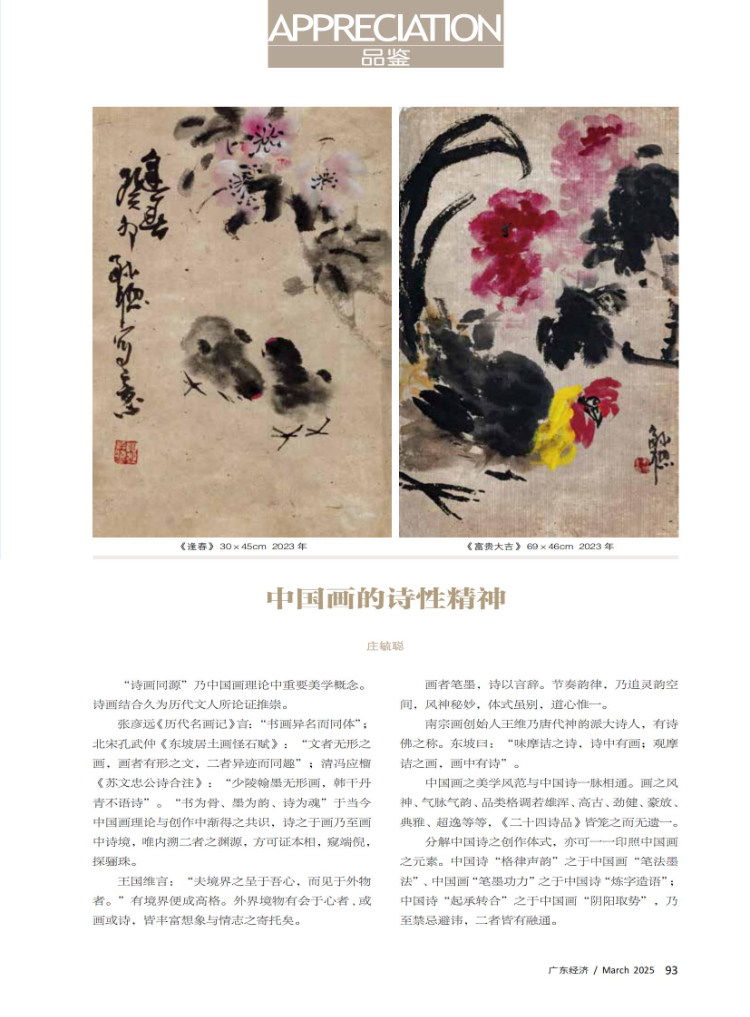 APPRECIATION
品鉴
逢春
癸卯 毓聪写之
毓聪
《逢春》30×45cm 2023 年
《富贵大吉》69×46cm 2023 年
中国画的诗性精神
庄毓聪
“诗画同源”乃中国画理论中重要美学概念。
诗画结合久为历代文人所论证推崇。
张彦远《历代名画记》言：“书画异名而同体”；
北宋孔武仲《东坡居士画怪石赋》：“文者无形之
画，画者有形之文，二者异迹而同趣”；清冯应榴
《苏文忠公诗合注》：“少陵翰墨无形画，韩干丹
青不语诗”。“书为骨、墨为韵、诗为魂”于当今
中国画理论与创作中渐得之共识，诗之于画乃至画
中诗境，唯内溯二者之渊源，方可证本相，窥端倪，
探骊珠。
王国维言：“夫境界之呈于吾心，而见于外物
者。”有境界便成高格。外界境物有会于心者，或
画或诗，皆丰富想象与情志之寄托矣。
画者笔墨，诗以言辞。节奏韵律，乃追灵韵空
间，风神秘妙，体式虽别，道心惟一。
南宗画创始人王维乃唐代神韵派大诗人，有诗
佛之称。东坡曰：“味摩诘之诗，诗中有画；观摩
诘之画，画中有诗”。
中国画之美学风范与中国诗一脉相通。画之风
神、气脉气韵、品类格调若雄浑、高古、劲健、豪放、
典雅、超逸等等，《二十四诗品》皆笼之而无遗一。
分解中国诗之创作体式，亦可一一印照中国画
之元素。中国诗“格律声韵”之于中国画“笔法墨
法”、中国画“笔墨功力”之于中国诗“炼字造语”；
中国诗“起承转合”之于中国画“阴阳取势”，乃
至禁忌避讳，二者皆有融通。
广东经济 / March 2025 93